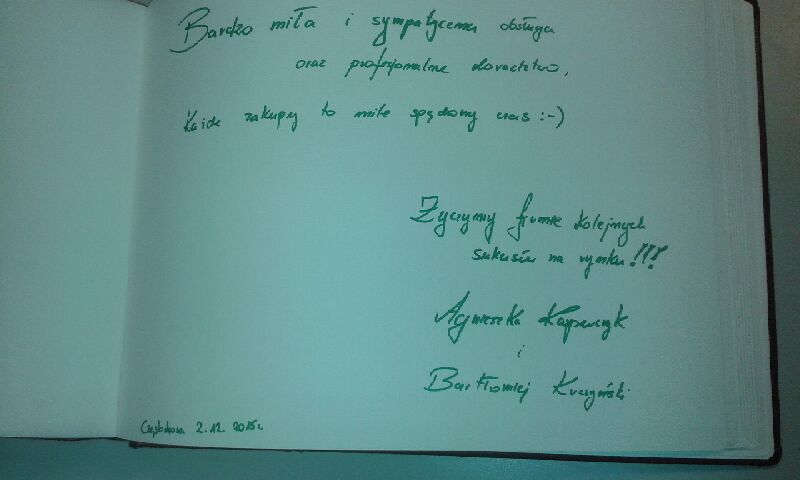 Bardzo miła i sympatyczna obsługa
oraz profesjonalne doradztwo,
Każde zakupy to mile spędzony czas :-)
Życzymy firmie kolejnych
sukcesów na rynku!!!
Agnieszka Kasperczyk
i
Bartłomiej
Częstochowa 2.12.2015r.